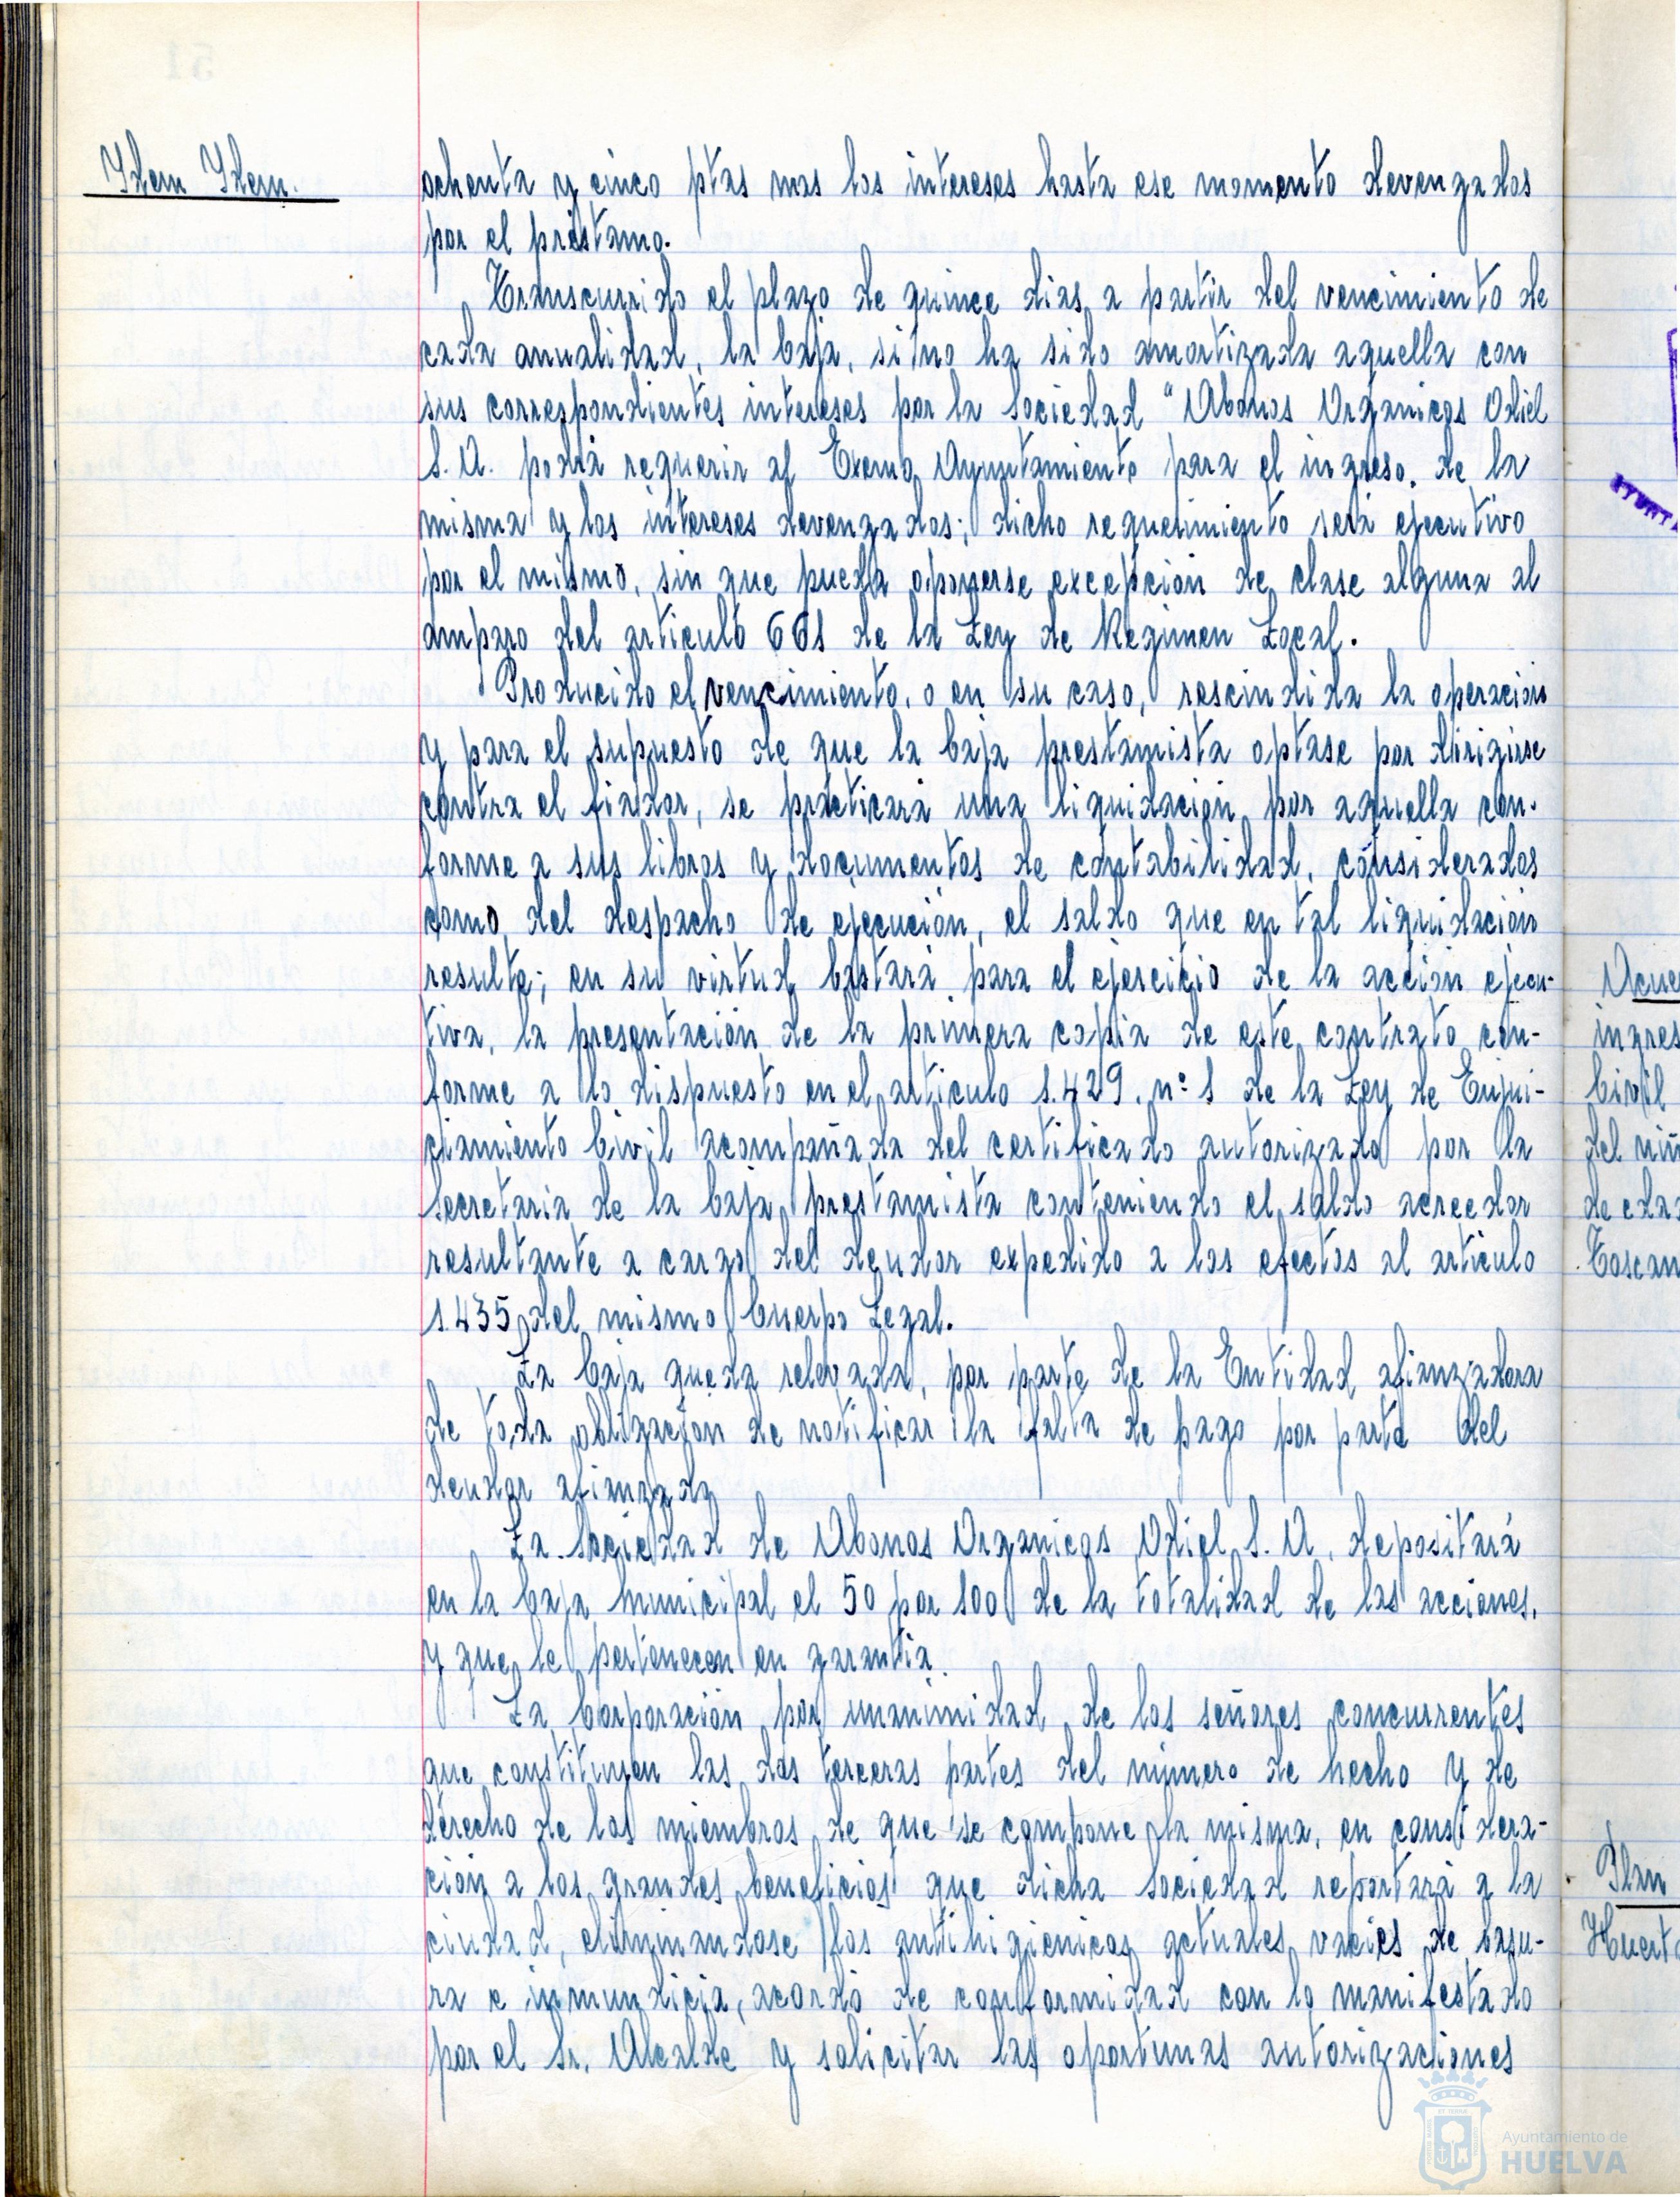 Idem Idem.
ochenta y cinco ptas mas los intereses hasta ese momento devengados
por el préstamo.
Transcurrido el plazo de quince dias a partir del vencimiento de
cada anualidad, la Caja, si no ha sido amortizada aquella con
sus correspondientes intereses por la Sociedad "Abonos Organicos Odiel
S.A. podrá requerir al Excmo Ayuntamiento para el ingreso de la
misma y los intereses devengados; dicho requerimiento será ejecutivo
por el mismo, sin que pueda oponerse excepción de clase alguna al
amparo del articulo 661 de la Ley de Regimen Local.
Producido el vencimiento, o en su caso, rescindida la operación
y para el supuesto de que la Caja prestamista optase por dirigirse
contra el fiador, se practicará una liquidación por aquella con-
forme a sus libros y documentos de contabilidad, considerados
como del despacho de ejecución, el saldo que en tal liquidación
resulte; en su virtud bastará para el ejercicio de la acción ejecu-
tiva, la presentación de la primera copia de este contrato con-
forme a lo dispuesto en el articulo 1.429. nº 1 de la Ley de Enjui-
ciamiento Civil acompañada del certificado autorizado por la
Secretaria de la Caja prestamista conteniendo el saldo acreedor
resultante a cargo del deudor expedido a los efectos al articulo
1.435 del mismo Cuerpo Legal.
La Caja queda relevada, por parte de la Entidad afianzadora
de toda obligación de notificar la falta de pago por parte del
deudor afianzado
La Sociedad de Abonos Organicos Odiel S.A. depositará
en la Caja Municipal el 50 por 100 de la totalidad de las acciones,
y que le pertenecen en garantia.
La Corporación por unanimidad de los señores concurrentes
que constituyen las dos terceras partes del número de hecho y de
derecho de los miembros de que se compone la misma, en considera-
ción a los grandes beneficios que dicha Sociedad reportará a la
ciudad, eliminandose los antihigienicos actuales vacies de basu-
ra e inmundicia, acordó de conformidad con lo manifestado
por el Sr. Alcalde y solicitar las oportunas autorizaciones
Civil
Plan
Ayuntamiento de
HUELVA